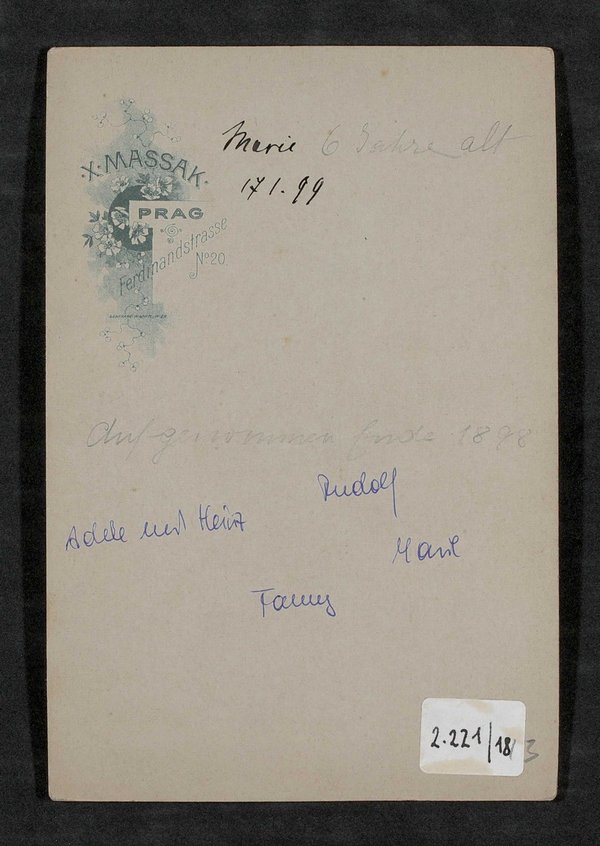 X. MASSAK.
PRAG
Ferdinandstrasse
No 20
Marie 6 Jahre alt
17 1. 99
Aufgenommen Ende 1898
Rudolf
Adele und Heinz
Marie
Fanny
2.221/18
3